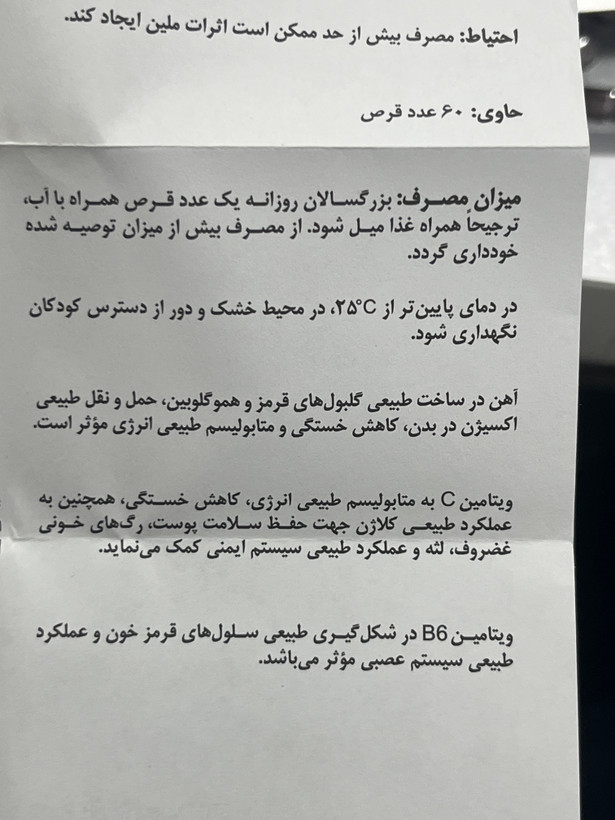 احتیاط: مصرف بیش از حد ممکن است اثرات ملین ایجاد کند.
حاوی: ۶۰ عدد قرص
میزان مصـرف: بزرگسـالان روزانـه یک عدد قـرص همـراه با آب،
ترجیحاً همراه غذا میـل شود. از مصـرف بیش از میزان توصیـه شده
خودداری گردد.
در دمای پایین‌تر از ۲۵°C، در محیط خشک و دور از دسترس کودکان
نگهداری شود.
آهن در ساخت طبیعی گلبول‌های قرمز و هموگلوبین، حمل و نقل طبیعی
اکسیژن در بدن، کاهش خستگی و متابولیسم طبیعی انرژی مؤثر است.
ویتامین C به متابولیسم طبیعی انرژی، کاهش خسـتگی، همچنین به
عملکرد طبیعـی کلاژن جهت حفـظ سـلامت پوست، رگ‌های خـونی
غضروف، لثه و عملکرد طبیعی سیستم ایمنی کمک می‌نماید.
ویتامیـن B6 در شکل‌گیـری طبیعی سـلول‌های قرمز خون و عملکرد
طبیعی سیستم عصبی مؤثر می‌باشد.